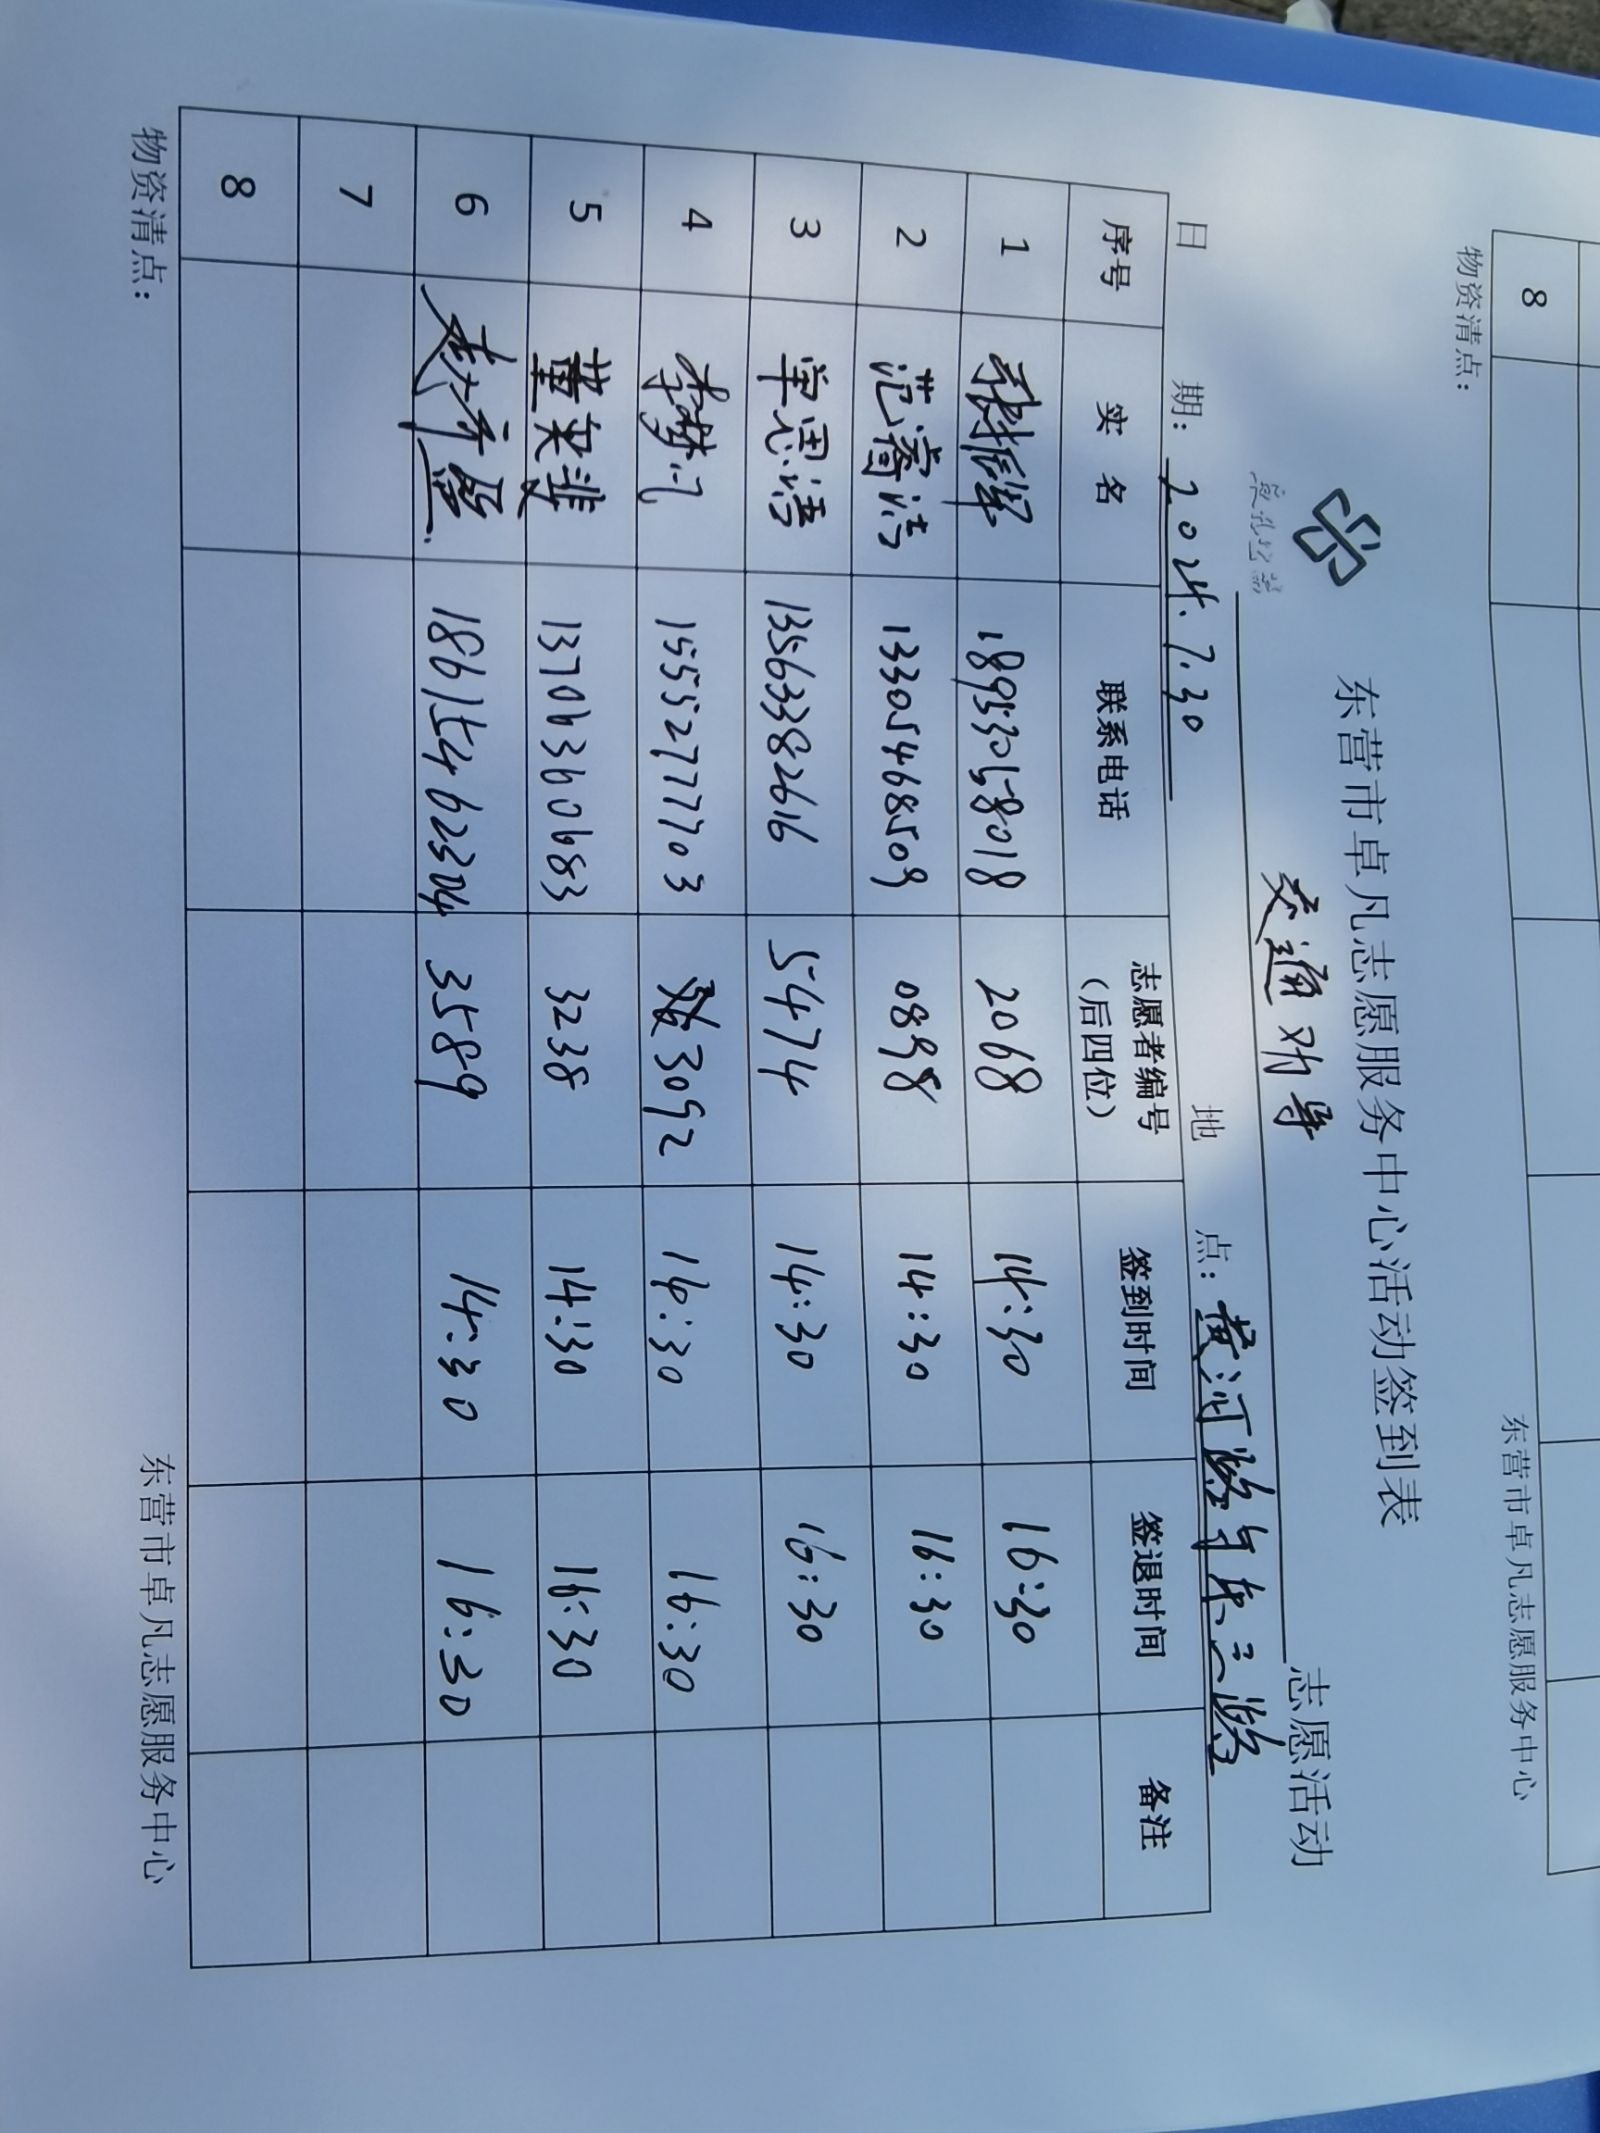 8
物资清点：
东营市卓凡志愿服务中心
东营市卓凡志愿服务中心活动签到表
交通劝导 志愿活动
日 期：2024.7.30 地 点：黄河路与东三路
序号 实 名 联系电话 志愿者编号（后四位） 签到时间 签退时间 备注
1 张振军 18953058018 2068 14:30 16:30
2 范裔清 13305468509 0898 14:30 16:30
3 单思洁 13563382616 5474 14:30 16:30
4 李梦凡 15552777703 3092 14:30 16:30
5 13706360683 3238 14:30 16:30
6 18615462304 3589 14:30 16:30
7
8
物资清点：
东营市卓凡志愿服务中心